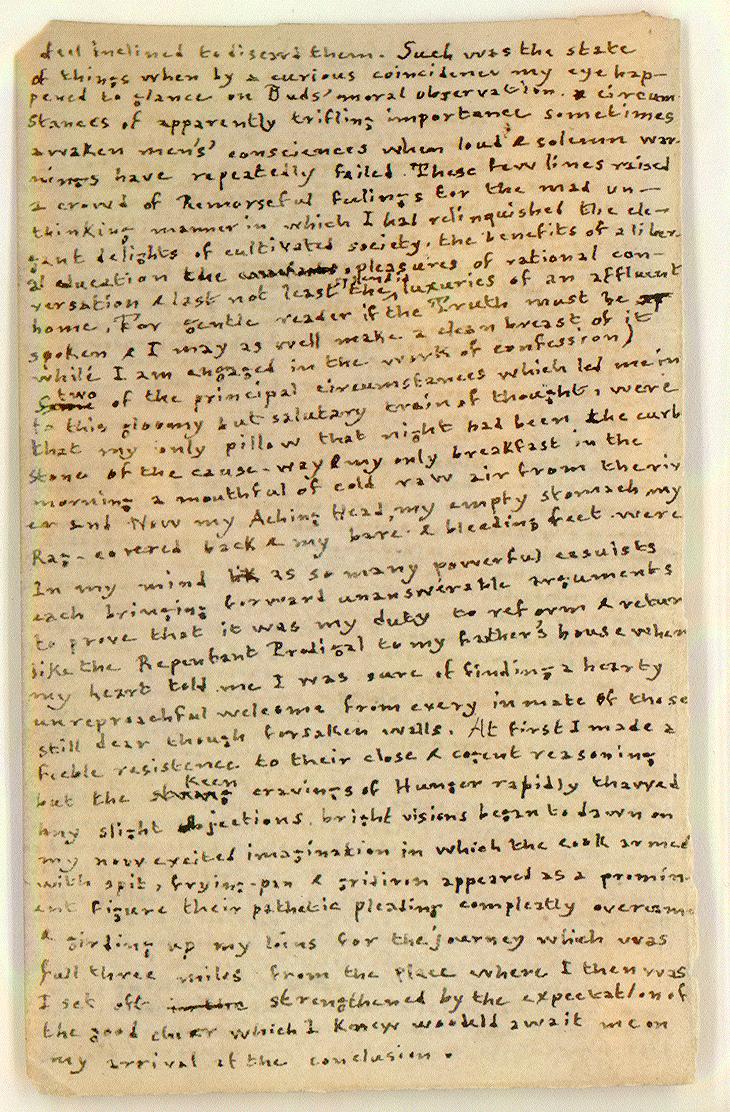 feel inclined to discard them. Such was the state
of things when by a curious coincidence my eye hap-
pened to glance on Buds' moral observation. circum-
stances of apparently trifling importance sometimes
awaken men's' consciences when loud & solemn war-
nings have repeatedly failed. These few lines raised
a crowd of Remorseful feelings for the mad un-
thinking manner in which I had relinquished the ele-
gant delights of cultivated society, the benefits of a liber-
al education the pleasures of rational con-
versation & last not least the splendid luxuries of an affluent
home, For gentle reader if the Truth must be
spoken & I may as well make a clean breast of it
while I am engaged in the work of confession)
two of the principal circumstances which led me in
to this gloomy but salutary train of thought, were
that my only pillow that night had been the curb
stone of the cause-way & my only breakfast in the
morning a mouthful of cold raw air from the riv
er and Now my Aching Head, my empty stomach, my
Rag-covered back & my bare & bleeding feet were
In my mind as so many powerful casuists
each bringing forward unanswerable arguments
to prove that it was my duty to reform & return
like the Repentant Prodigal to my father's house when
my heart told me I was sure of finding a hearty
unreproachful welcome from every inmate of those
still dear though forsaken walls. At first I made a
feeble resistence to their close & cogent reasoning
but the Keen cravings of Hunger rapidly thawed
my slight objections. bright visions began to dawn on
my now excited imagination in which the cook armed
with spit, frying-pan & gridiron appeared as a promin-
ent figure their pathetic pleading compleatly overcame
& girding up my loins for the journey which was
full three miles from the place where I then was
I set off strengthened by the expectation of
the good cheer which I knew woould await me on
my arrival at the conclusion.